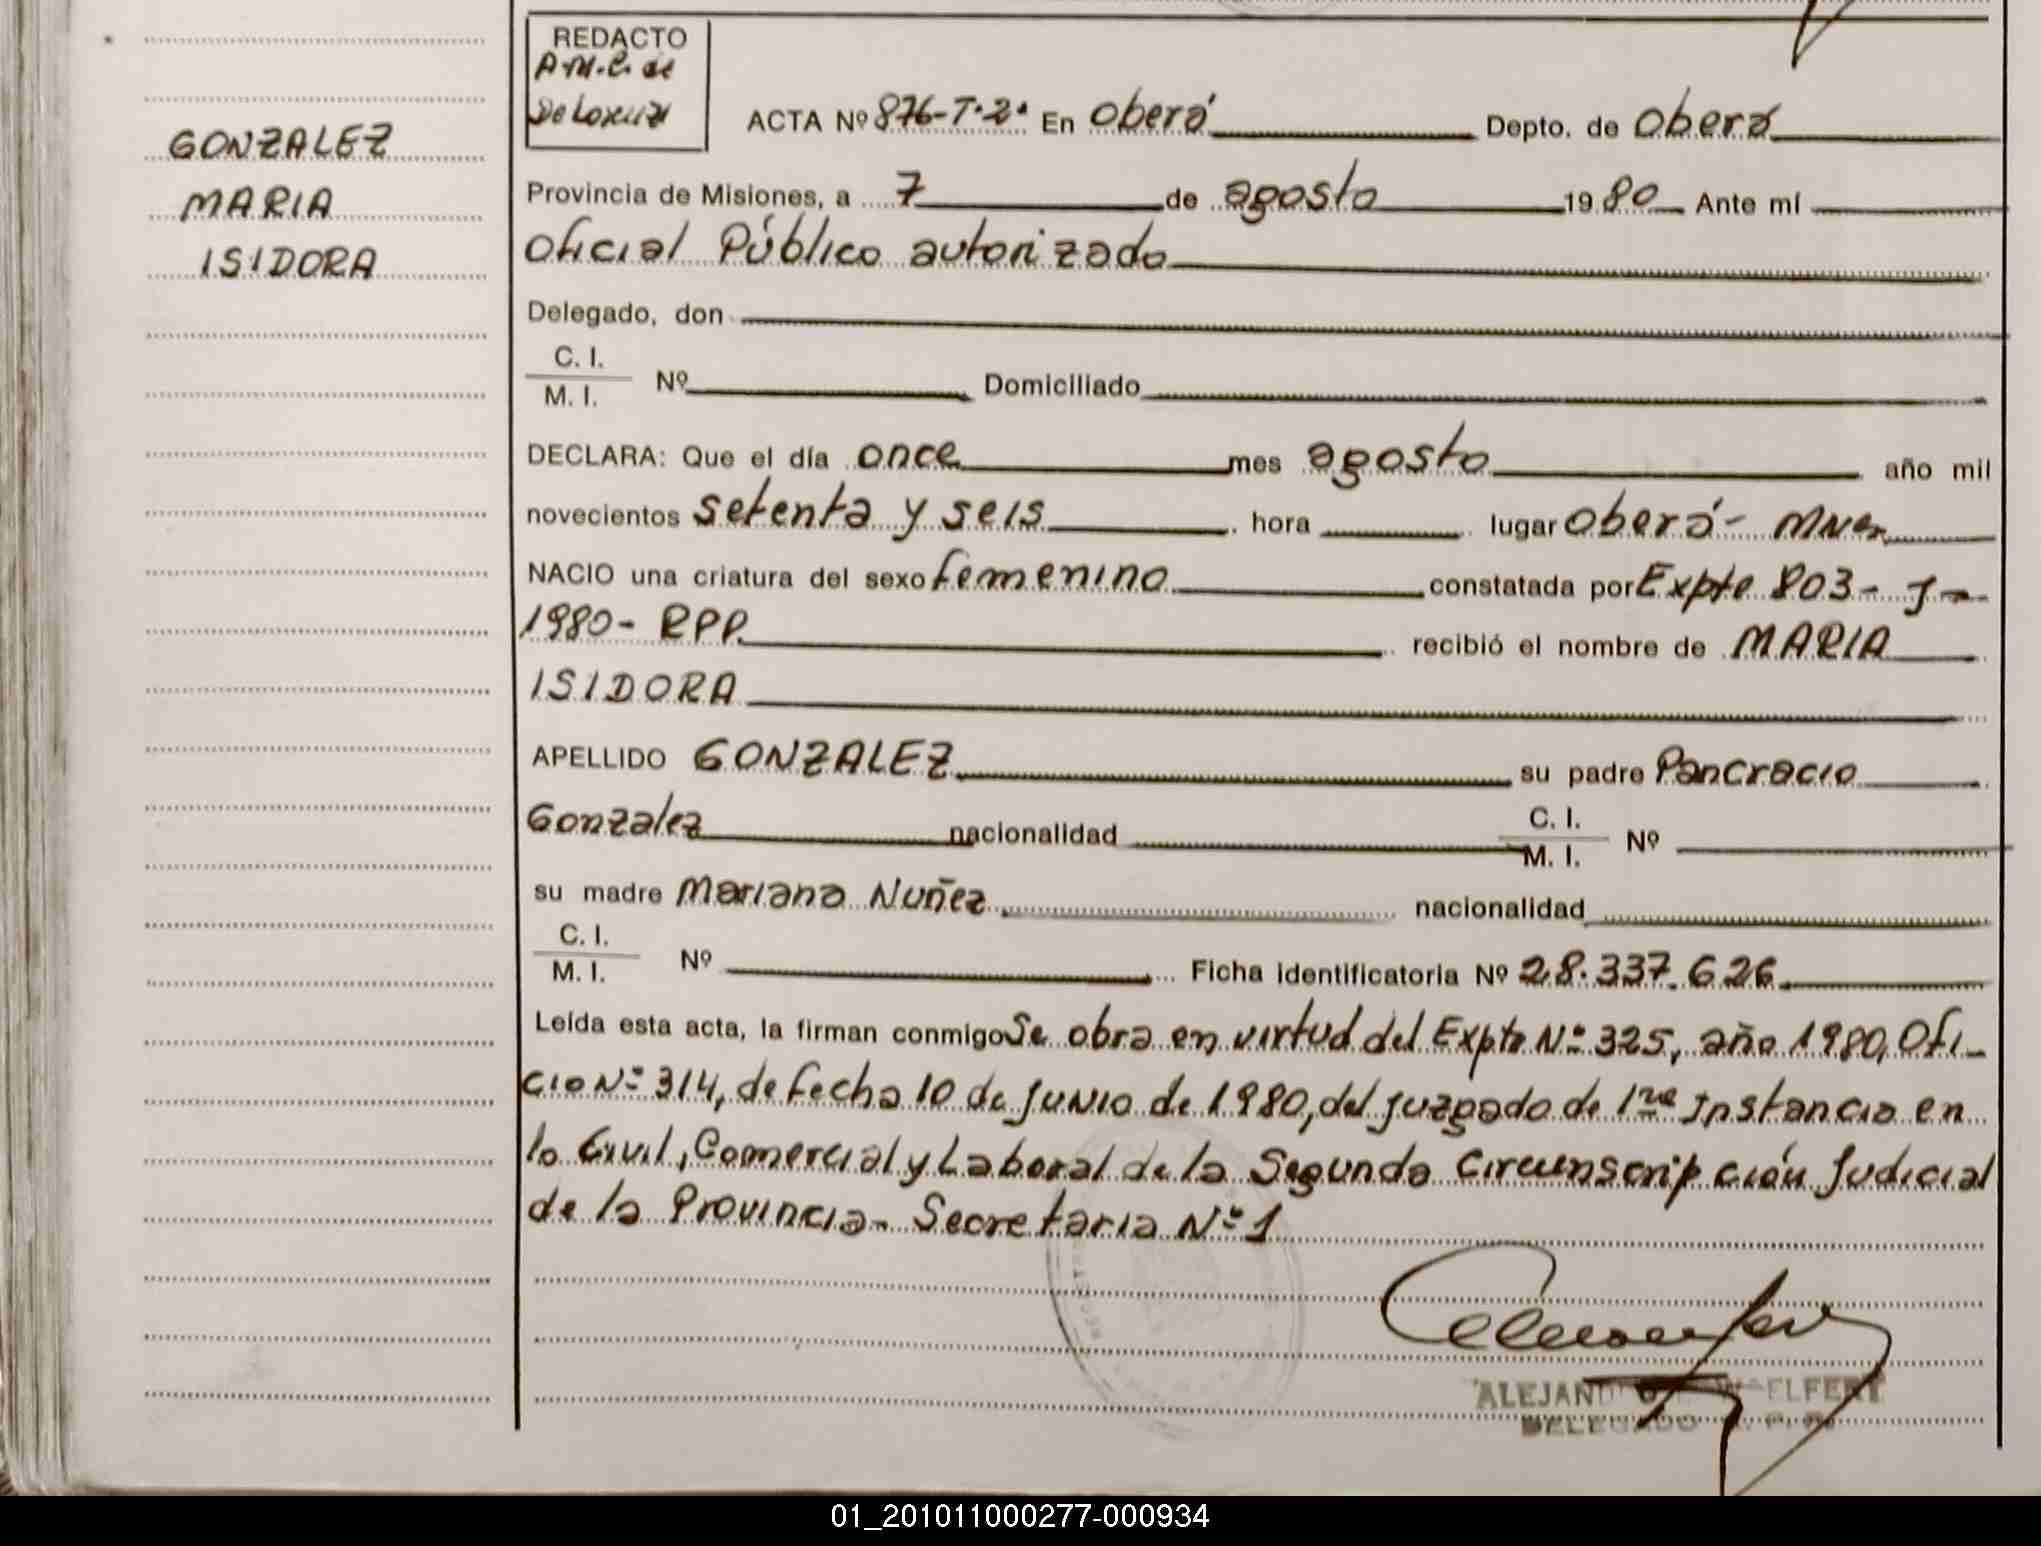 REDACTO
A.M.C. de
ACTA Nº 876-T-2º En Oberá Depto. de Oberá
GONZALEZ
MARIA
ISIDORA
Provincia de Misiones, a 7 de agosto 1980 Ante mí
Oficial Público autorizado
Delegado, don
C. I.
M. I. Nº Domiciliado
DECLARA: Que el día once mes agosto año mil
novecientos setenta y seis hora lugar Oberá - Mnes
NACIO una criatura del sexo femenino constatada por Expte 803 - J -
1980 - RPP. recibió el nombre de MARIA
ISIDORA
APELLIDO GONZALEZ su padre Pancracio
Gonzalez nacionalidad C. I. M. I. Nº
su madre Mariana Nuñez nacionalidad
C. I.
M. I. Nº Ficha identificatoria Nº 28.337.626
Leída esta acta, la firman conmigo Se obra en virtud del Expte Nº 325, año 1980, Ofi-
cio Nº 314, de fecha 10 de junio de 1980, del juzgado de 1ra Instancia en
lo Civil, Comercial y Laboral de la Segunda Circunscripción Judicial
de la Provincia - Secretaria Nº 1
DELEGADO
01_201011000277-000934